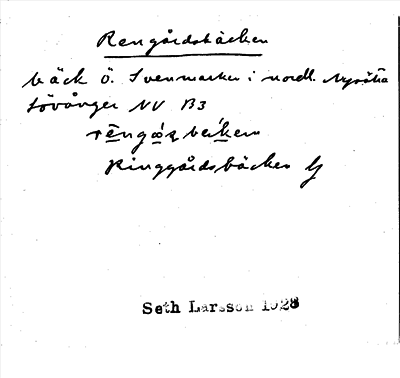 Rengårdsbäcken
bäck ö. Svenmarken i nordl. Nysätra
Lövånger NV B3
rēngǻʀ beḱen
Ringgårdsbäcken
Seth Larsson 1928